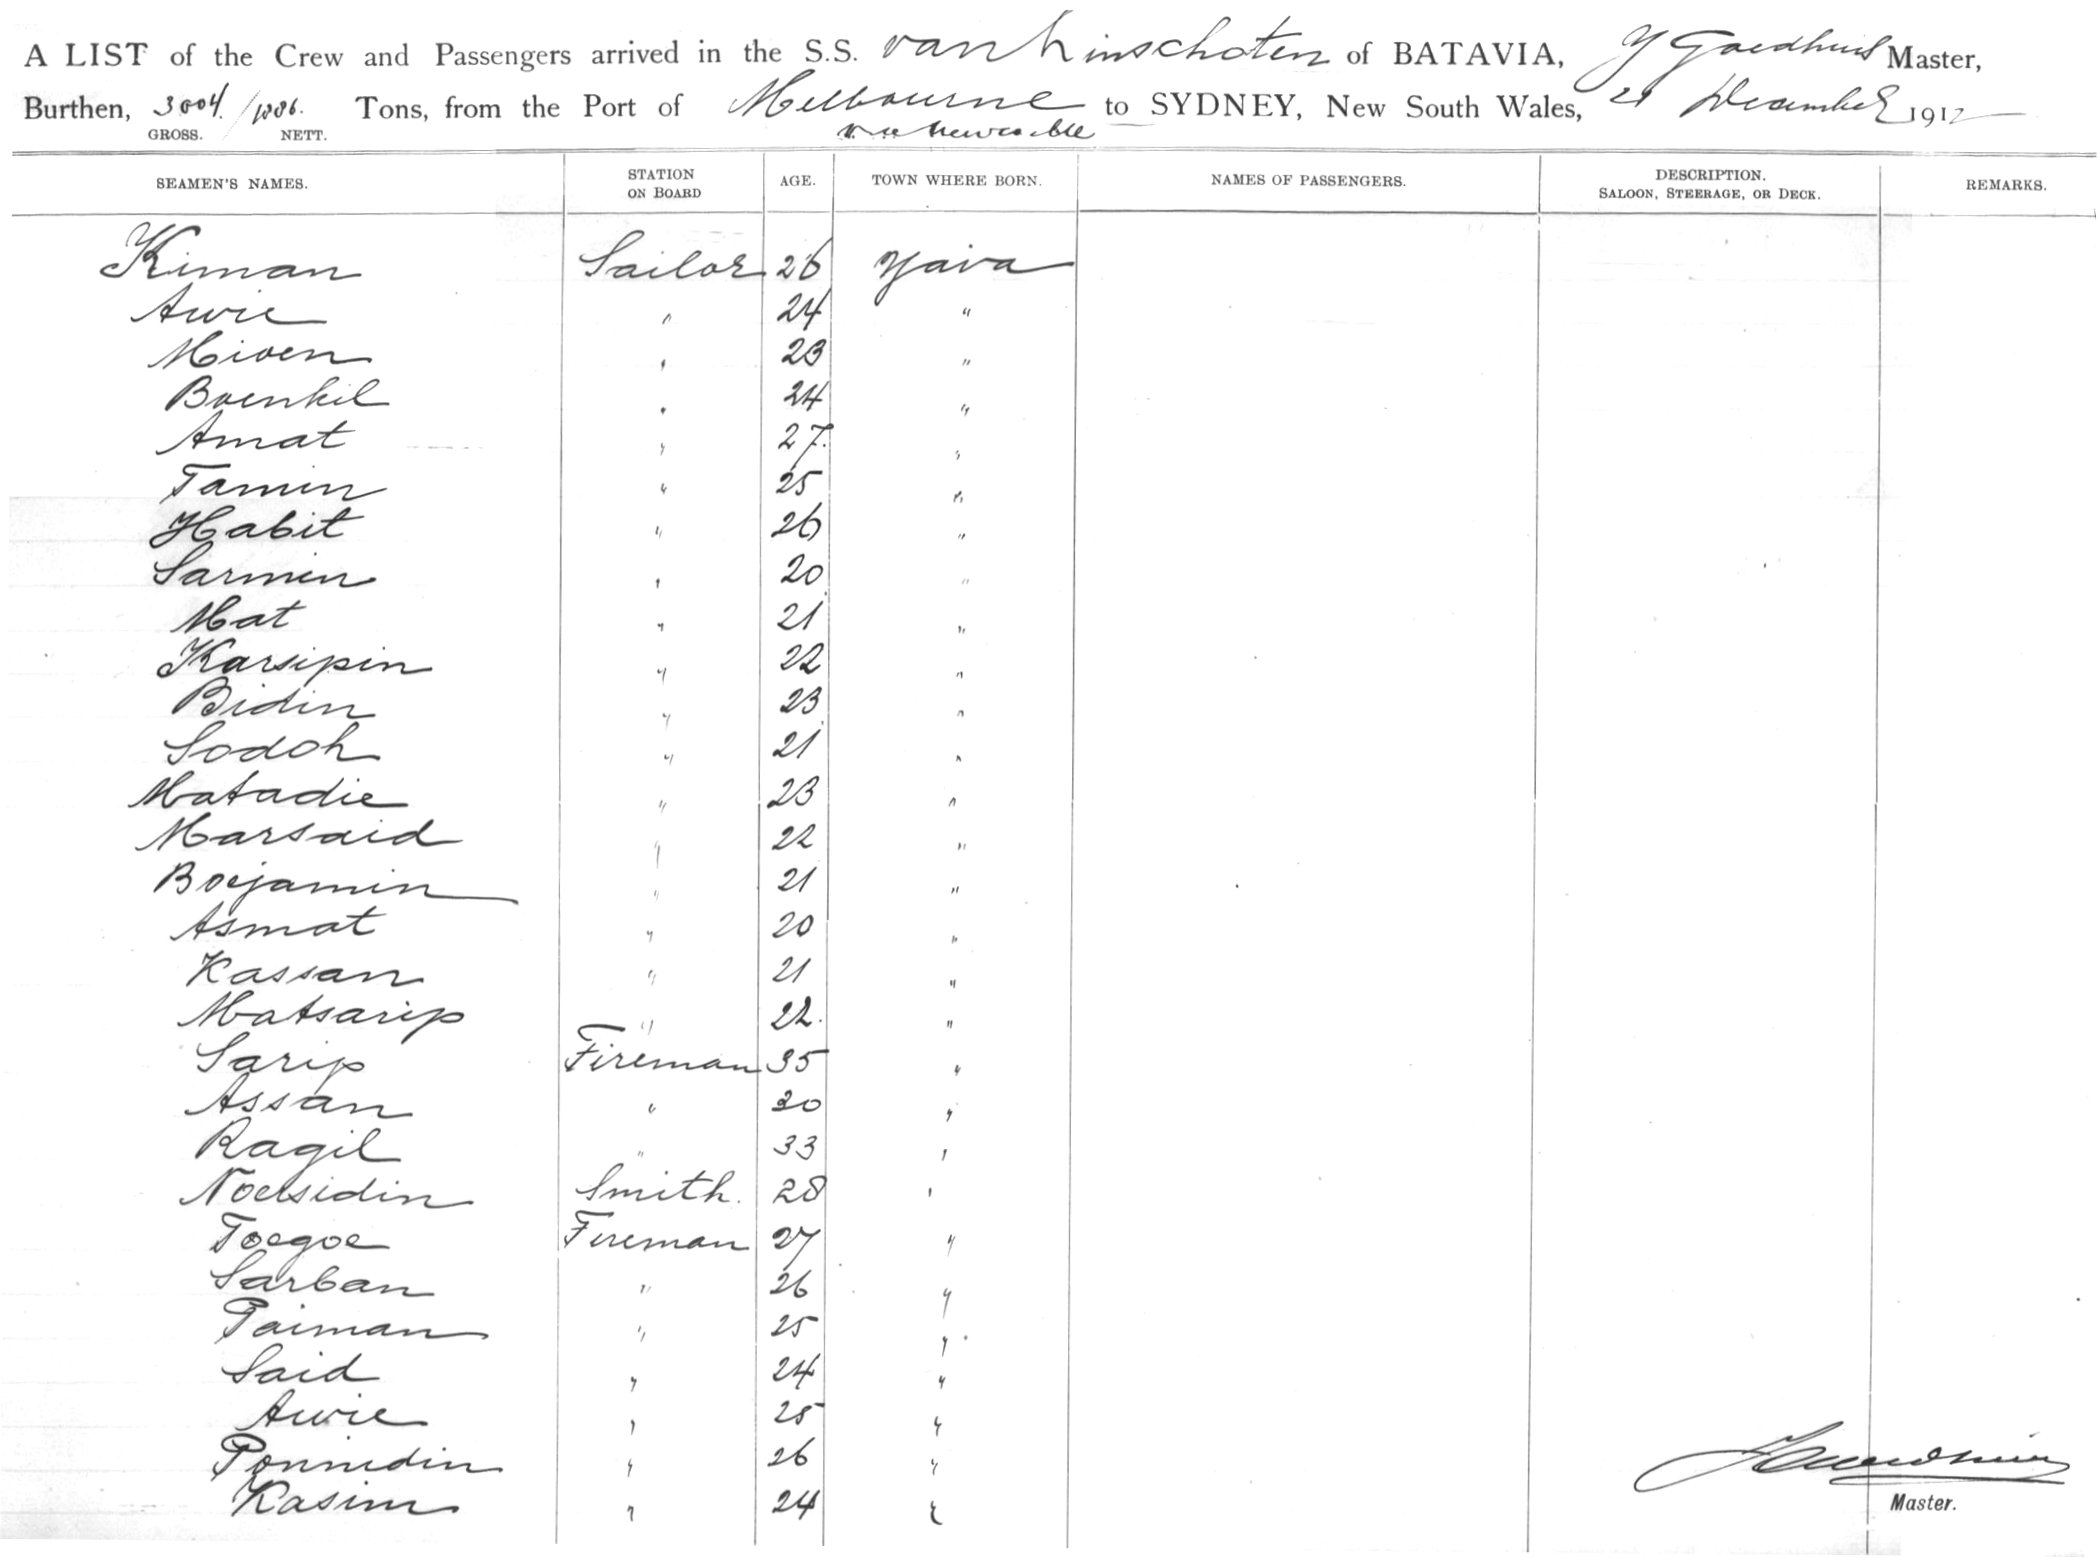 A LIST of the Crew and Passengers arrived in the S.S. van Linschoten of BATAVIA, Y Goedhuis Master,
Burthen, 3004 / 1886 Tons, from the Port of Melbourne to SYDNEY, New South Wales, 21 December 1912
GROSS. NETT. via Newcastle
SEAMEN'S NAMES. STATION ON BOARD AGE. TOWN WHERE BORN. NAMES OF PASSENGERS. DESCRIPTION. SALOON, STEERAGE, OR DECK. REMARKS.
Kiman Sailor 26 Yava
Awie " 24 "
Mioen " 23 "
Boenkil " 24 "
Amat " 27 "
Tamin " 25 "
Habit " 26 "
Sarmin " 20 "
Mat " 21 "
Karsipin " 22 "
Bidin " 23 "
Sodoh " 21 "
Matadie " 23 "
Marsaid " 22 "
Boejamin " 21 "
Asmat " 20 "
Kassan " 21 "
Matsarip " 22 "
Sarip Fireman 35 "
Assan " 30 "
Ragil " 33 "
Noersidin Smith. 28 "
Toegoe Fireman 27 "
Sarban " 26 "
Paiman " 25 "
Said " 24 "
Awie " 25 "
Ponnidin " 26 "
Kasim " 24 "
Master.